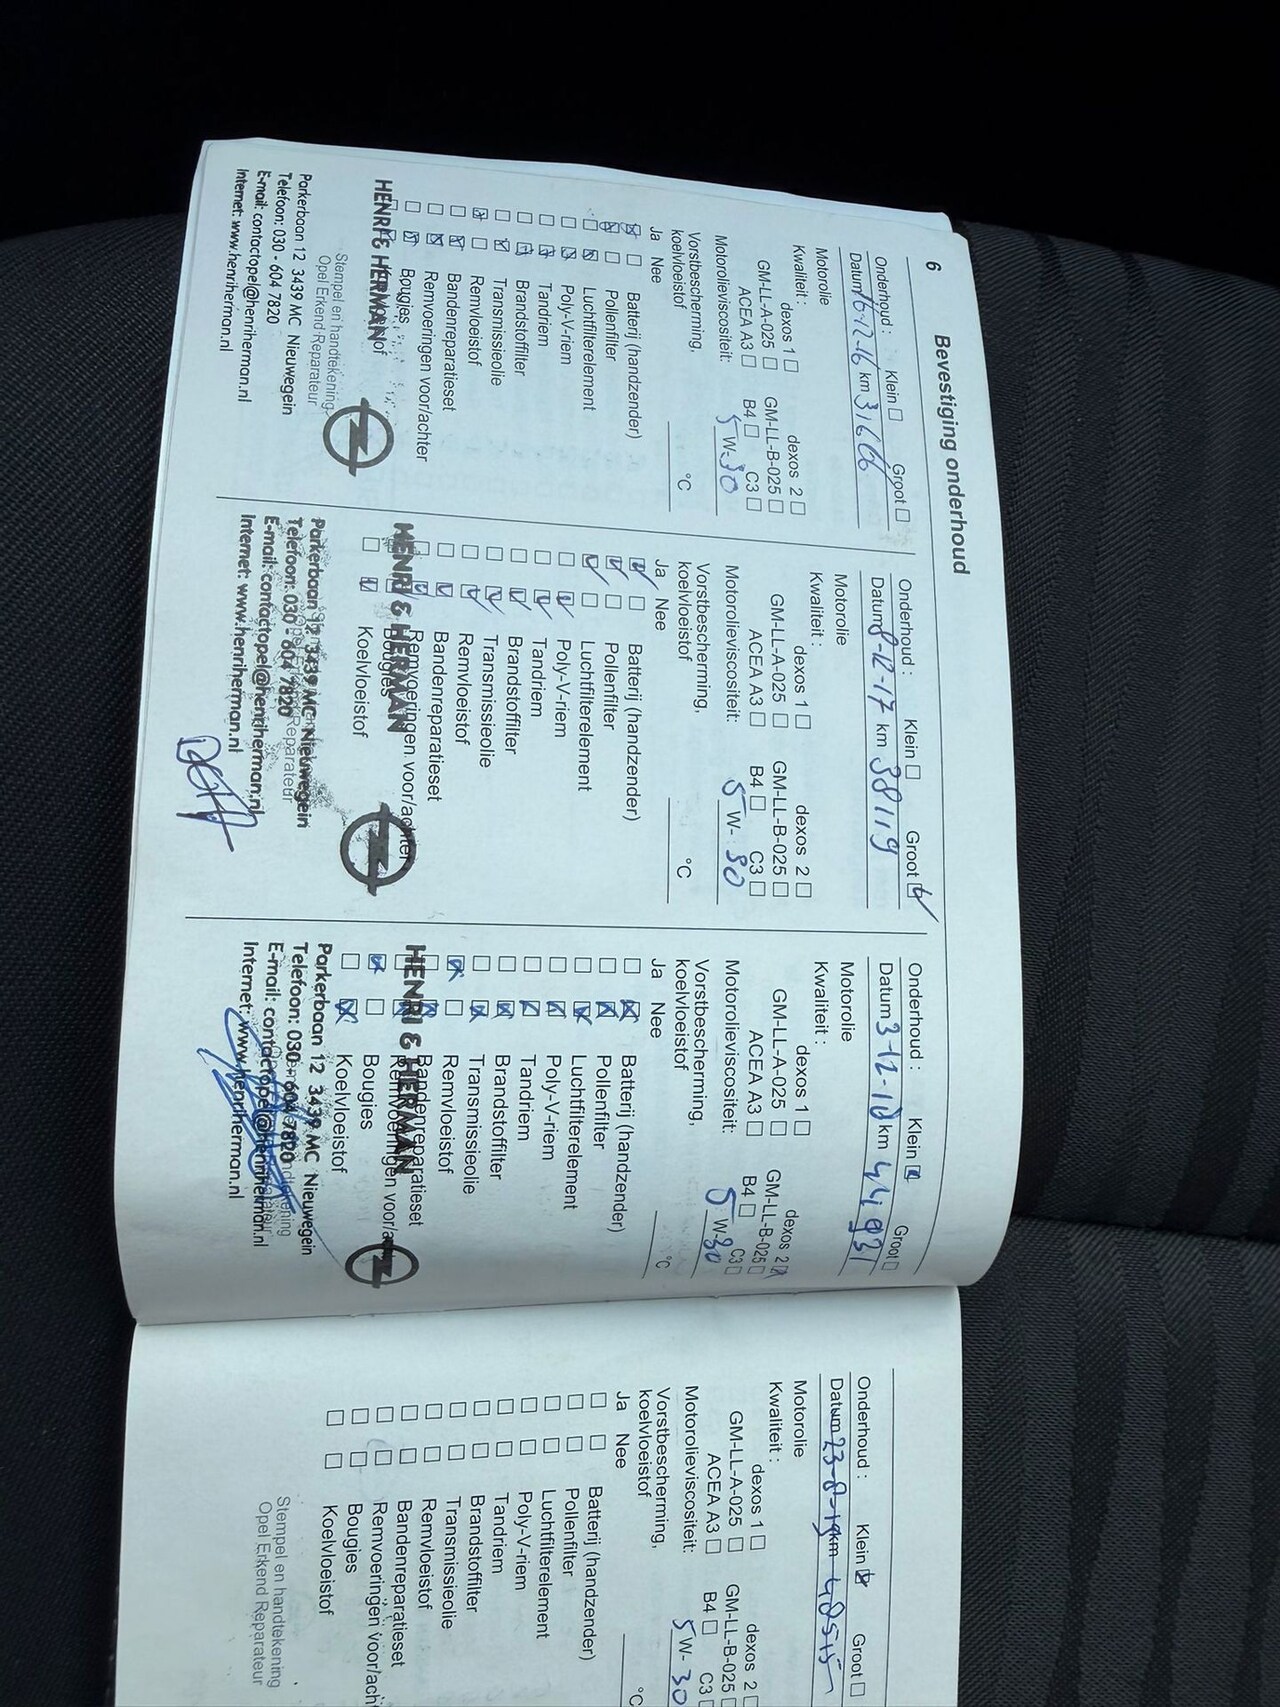 6 Bevestiging onderhoud
Onderhoud : Klein Groot
Datum 16-12-16 km 31666
Motorolie
Kwaliteit : dexos 1 dexos 2
GM-LL-A-025 GM-LL-B-025
ACEA A3 B4 C3
Motorolieviscositeit: 5 W-30
Vorstbescherming,
koelvloeistof °C
Ja Nee
Batterij (handzender)
Pollenfilter
Luchtfilterelement
Poly-V-riem
Tandriem
Brandstoffilter
Transmissieolie
Remvloeistof
Bandenreparatieset
Remvoeringen voor/achter
Bougies
HENRI & HERMAN
Stempel en handtekening
Opel Erkend Reparateur
Parkerbaan 12 3439 MC Nieuwegein
Telefoon: 030 - 604 7820
E-mail: contactopel@henriherman.nl
Internet: www.henriherman.nl
Onderhoud : Klein Groot
Datum 8-12-17 km 38119
Motorolie
Kwaliteit : dexos 1 dexos 2
GM-LL-A-025 GM-LL-B-025
ACEA A3 B4 C3
Motorolieviscositeit: 5 W-30
Vorstbescherming,
koelvloeistof °C
Ja Nee
Batterij (handzender)
Pollenfilter
Luchtfilterelement
Poly-V-riem
Tandriem
Brandstoffilter
Transmissieolie
Remvloeistof
Bandenreparatieset
Remvoeringen voor/achter
Bougies
HENRI & HERMAN
Koelvloeistof
Parkerbaan 12 3439 MC Nieuwegein
Telefoon: 030 - 604 7820
E-mail: contactopel@henriherman.nl
Internet: www.henriherman.nl
Onderhoud : Klein Groot
Datum 3-12-18 km 44931
Motorolie
Kwaliteit : dexos 1 dexos 2
GM-LL-A-025 GM-LL-B-025
ACEA A3 B4 C3
Motorolieviscositeit: 5 W-30
Vorstbescherming,
koelvloeistof °C
Ja Nee
Batterij (handzender)
Pollenfilter
Luchtfilterelement
Poly-V-riem
Tandriem
Brandstoffilter
Transmissieolie
Remvloeistof
Bandenreparatieset
Remvoeringen voor/a
HENRI & HERMAN
Bougies
Koelvloeistof
Parkerbaan 12 3439 MC Nieuwegein
Telefoon: 030 - 604 7820
E-mail: contactopel@henriherman.nl
Internet: www.henriherman.nl
Onderhoud : Klein Groot
Datum 23-8-19 km 48515
Motorolie
Kwaliteit : dexos 1 dexos 2
GM-LL-A-025 GM-LL-B-025
ACEA A3 B4 C3
Motorolieviscositeit: 5 W-30
Vorstbescherming,
koelvloeistof °C
Ja Nee
Batterij (handzender)
Pollenfilter
Luchtfilterelement
Poly-V-riem
Tandriem
Brandstoffilter
Transmissieolie
Remvloeistof
Bandenreparatieset
Remvoeringen voor/ach
Bougies
Koelvloeistof
Stempel en handtekening
Opel Erkend Reparateur